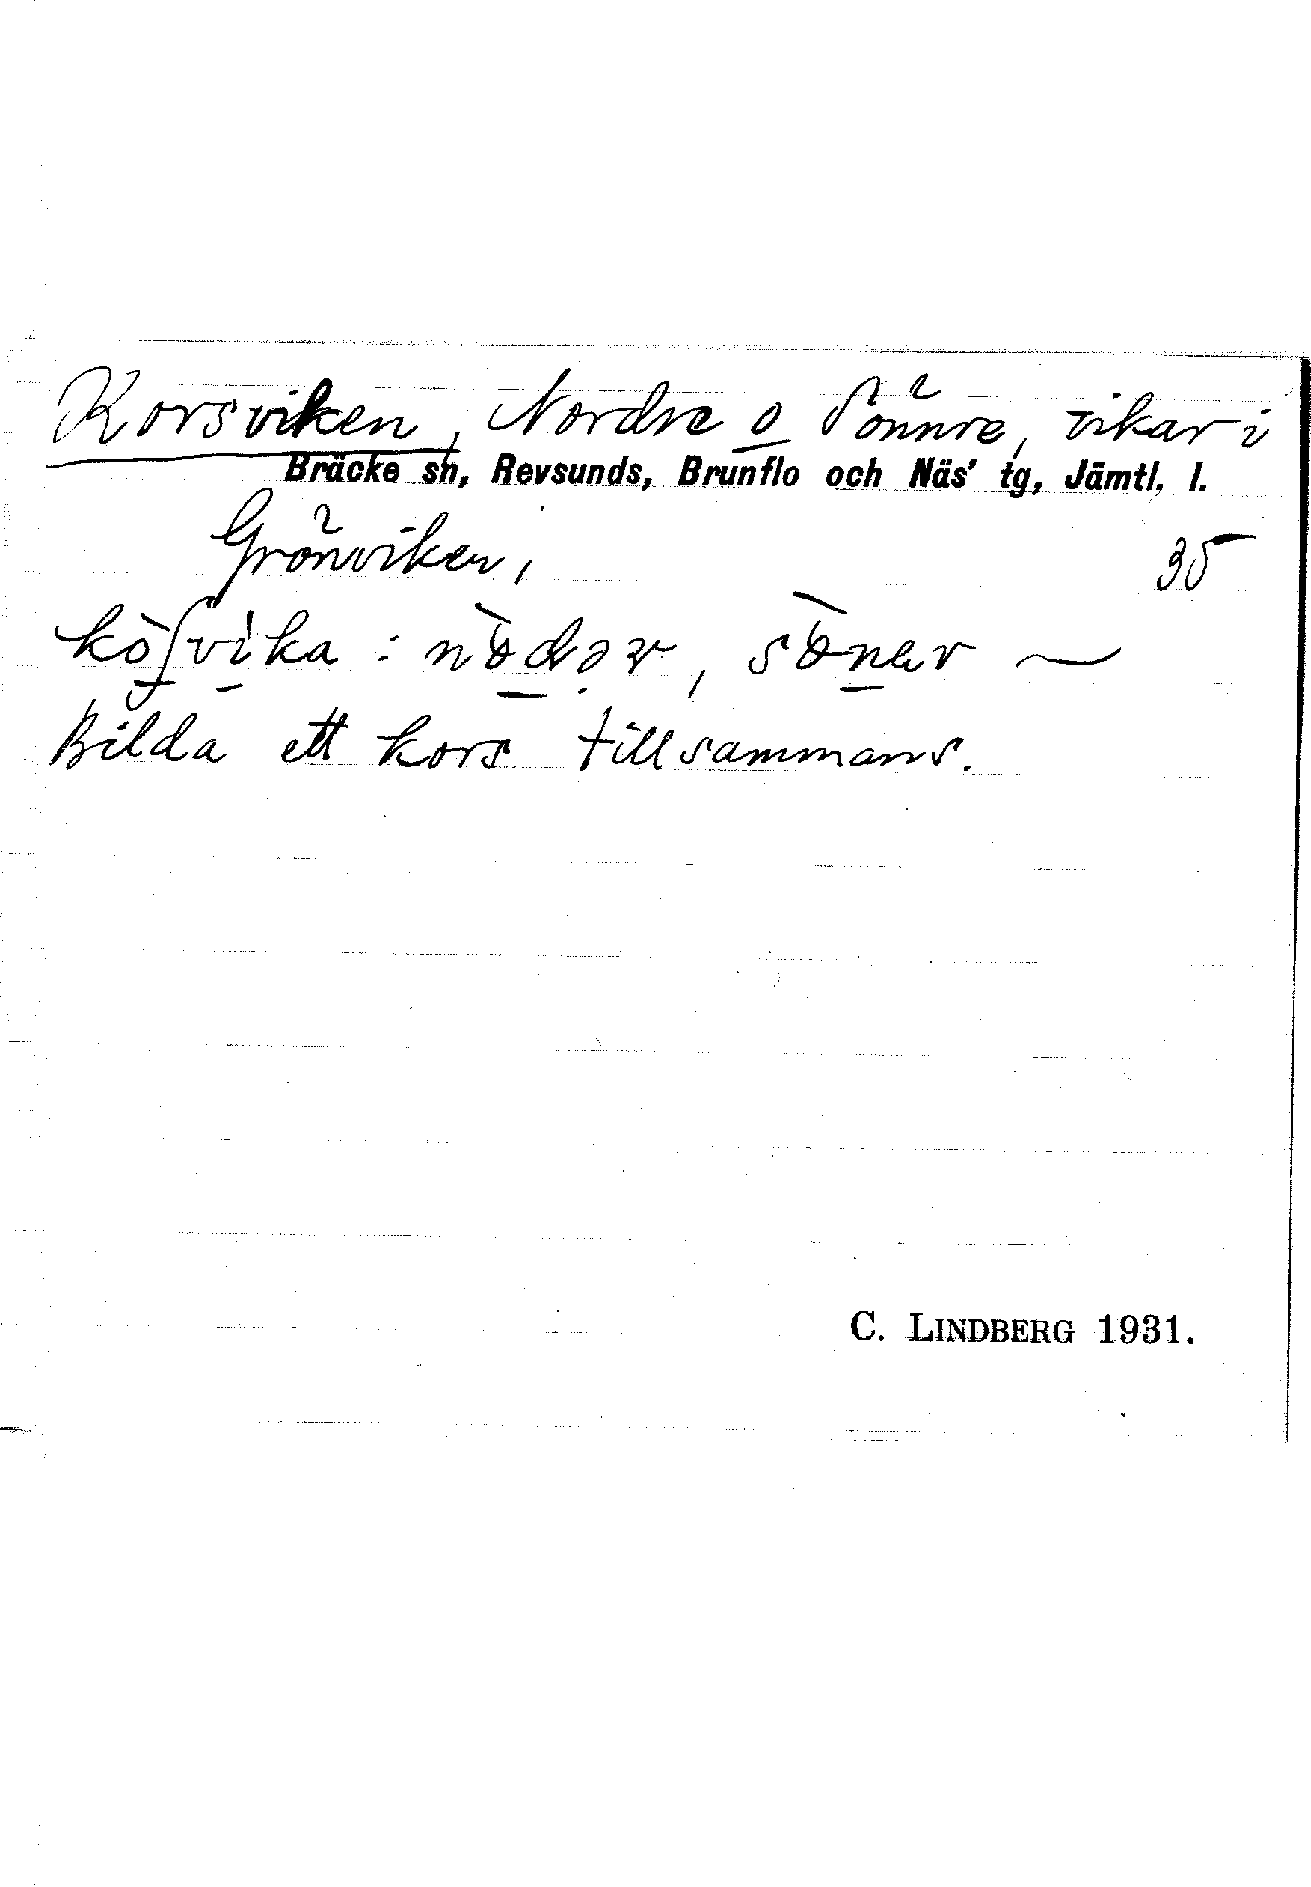 Korsviken, Nordre o Sönnre, vikar i
Bräcke sn, Revsunds, Brunflo och Näs' tg, Jämtl. l.
Grönviken, 35
Bilda ett kors tillsammans.
C. LINDBERG 1931.